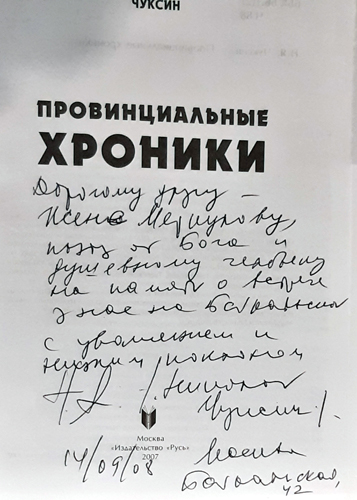 ЧУКСИН
ПРОВИНЦИАЛЬНЫЕ
ХРОНИКИ
Дорогому другу –
Меркулову,
от Бога и
душевному человеку
на память о встрече
у нас на
с уважением и
низким поклоном
Николай
Чуксин
Москва
«Издательство «Русь»
2007
14/09/08
Москва
42